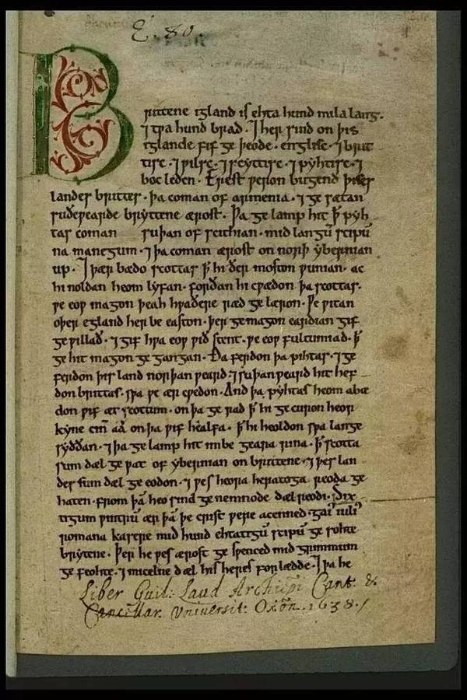 E. 80.
Brittene igland is ehta hund mila lang.
⁊ tƿa hund brad. ⁊ her sind on þis
iglande fif ge þeode. englisc. ⁊ brit
tisc. ⁊ ƿilsc. ⁊ scyttisc. ⁊ pyhtisc. ⁊
boc leden. Erest ƿeron bugend þises
landes brittes. þa coman of armenia. ⁊ ge sætan
suðeƿearde bryttene ærost. Þa ge lamp hit ꝥ pyh
tas coman suþan of scithian. mid langū scipū
na manegum. ⁊ þa coman ærost on norþ ybernian
up. ⁊ þær bædo scottas ꝥ hi ðer moston ƿunian. ac
hi noldan heom lyfan. forðan hi cƿædon þa scottas.
ƿe eoƿ magon þeah hƿaðere ræd ge læron. Ƿe ƿitan
oþer egland her be easton. þer ge magon eardian gif
ge ƿillað. ⁊ gif hƿa eoƿ ƿið stent. ƿe eoƿ fultumiað. ꝥ
ge hit magon ge gangan. Ða ferdon þa pihtas. ⁊ ge
ferdon þis land norþan ƿeard. ⁊ suþan ƿeard hit hef
don brittas. sƿa ƿe ær cƿedon. And þa pyhtas heom abæ
don ƿif æt scottum. on þa ge rad ꝥ hi ge curon heor
kyne cin aa on þa ƿif healfa. ꝥ hi heoldon sƿa lange
syððan. ⁊ þa ge lamp hit imbe geara rina. ꝥ scotta
sum dæl ge ƿat of ybernian on brittene. ⁊ þes lan
des sum dæl ge eodon. ⁊ ƿes heora heratoga reoda ge
haten. from þā heo sind ge nemnode dæl reodi. Six
tigum ƿintrū ær þā þe crist ƿere acenned. gaius iulius
romana kasere mid hund ehtatigū scipū ge sohte
brytene. Þer he ƿes ærost ge sƿenced mid grimmum
ge feohte. ⁊ micelne dæl his heres for lædde. ⁊ þa he
Liber Guil: Laud Archiepi Cant: &
Cancillar. Universit: Oxon. 1638.